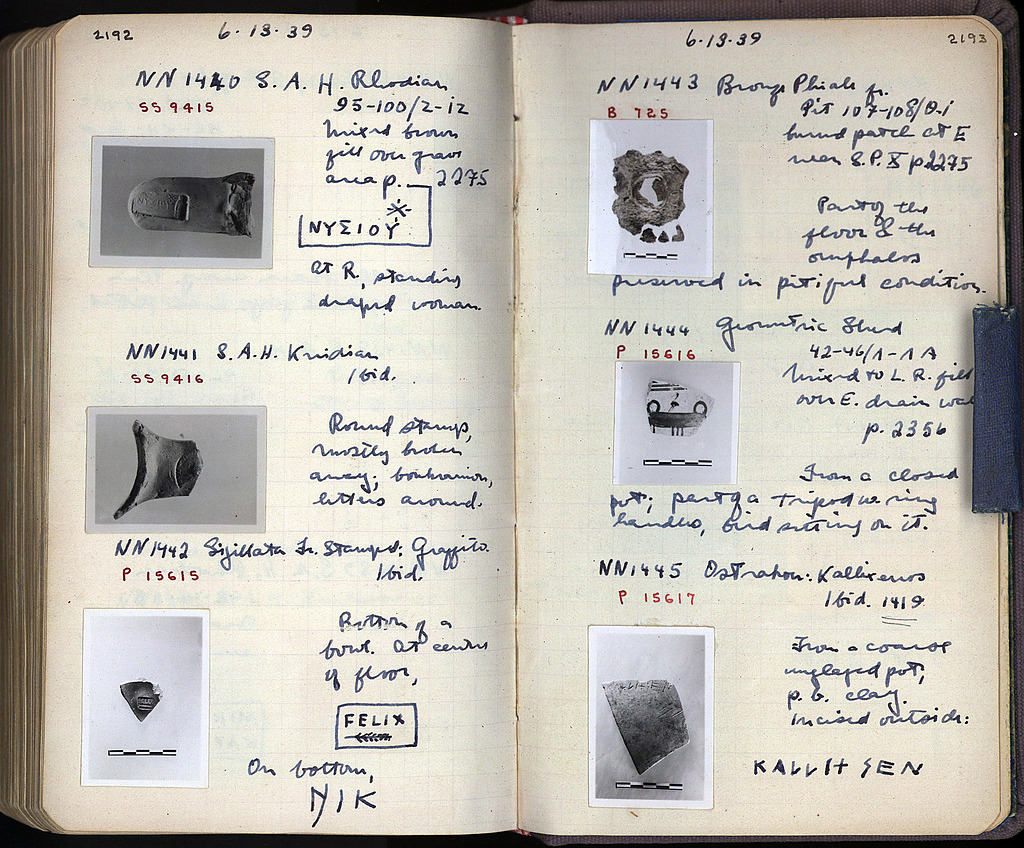 2192
6-13-39
NN 1440 S.A.H. Rhodian
SS 9415
95-100/2-12
Mixed brown
fill over grave
area p. 2275
ΝΥΣΙΟΥ
At R., standing
draped woman.
NN 1441 S.A.H. Knidian
SS 9416
Ibid.
Round stamp,
mostly broken
away; boukranion,
letters around.
NN 1442 Sigillata Fr. Stamped: Graffito.
P 15615
Ibid.
Bottom of a
bowl. At center
of floor,
FELIX
On bottom,
NIK
6-13-39
2193
NN 1443 Bronze Phiale fr.
B 725
Pit 107-108/
burned patch at E
near S.P. p 2275
Part of the
floor & the
omphalos
preserved in pitiful condition.
NN 1444 Geometric Sherd
P 15616
42-46/1-1A
Mixed to L.R. fill
over E. drain wall
p. 2356
From a closed
pot; part of a tripod w. ring
handles, bird sitting on it.
NN 1445 Ostrakon: Kallixenos
P 15617
Ibid. 1419
From a coarse
unglazed pot,
p. b. clay.
Incised outside:
KALLI+SEN